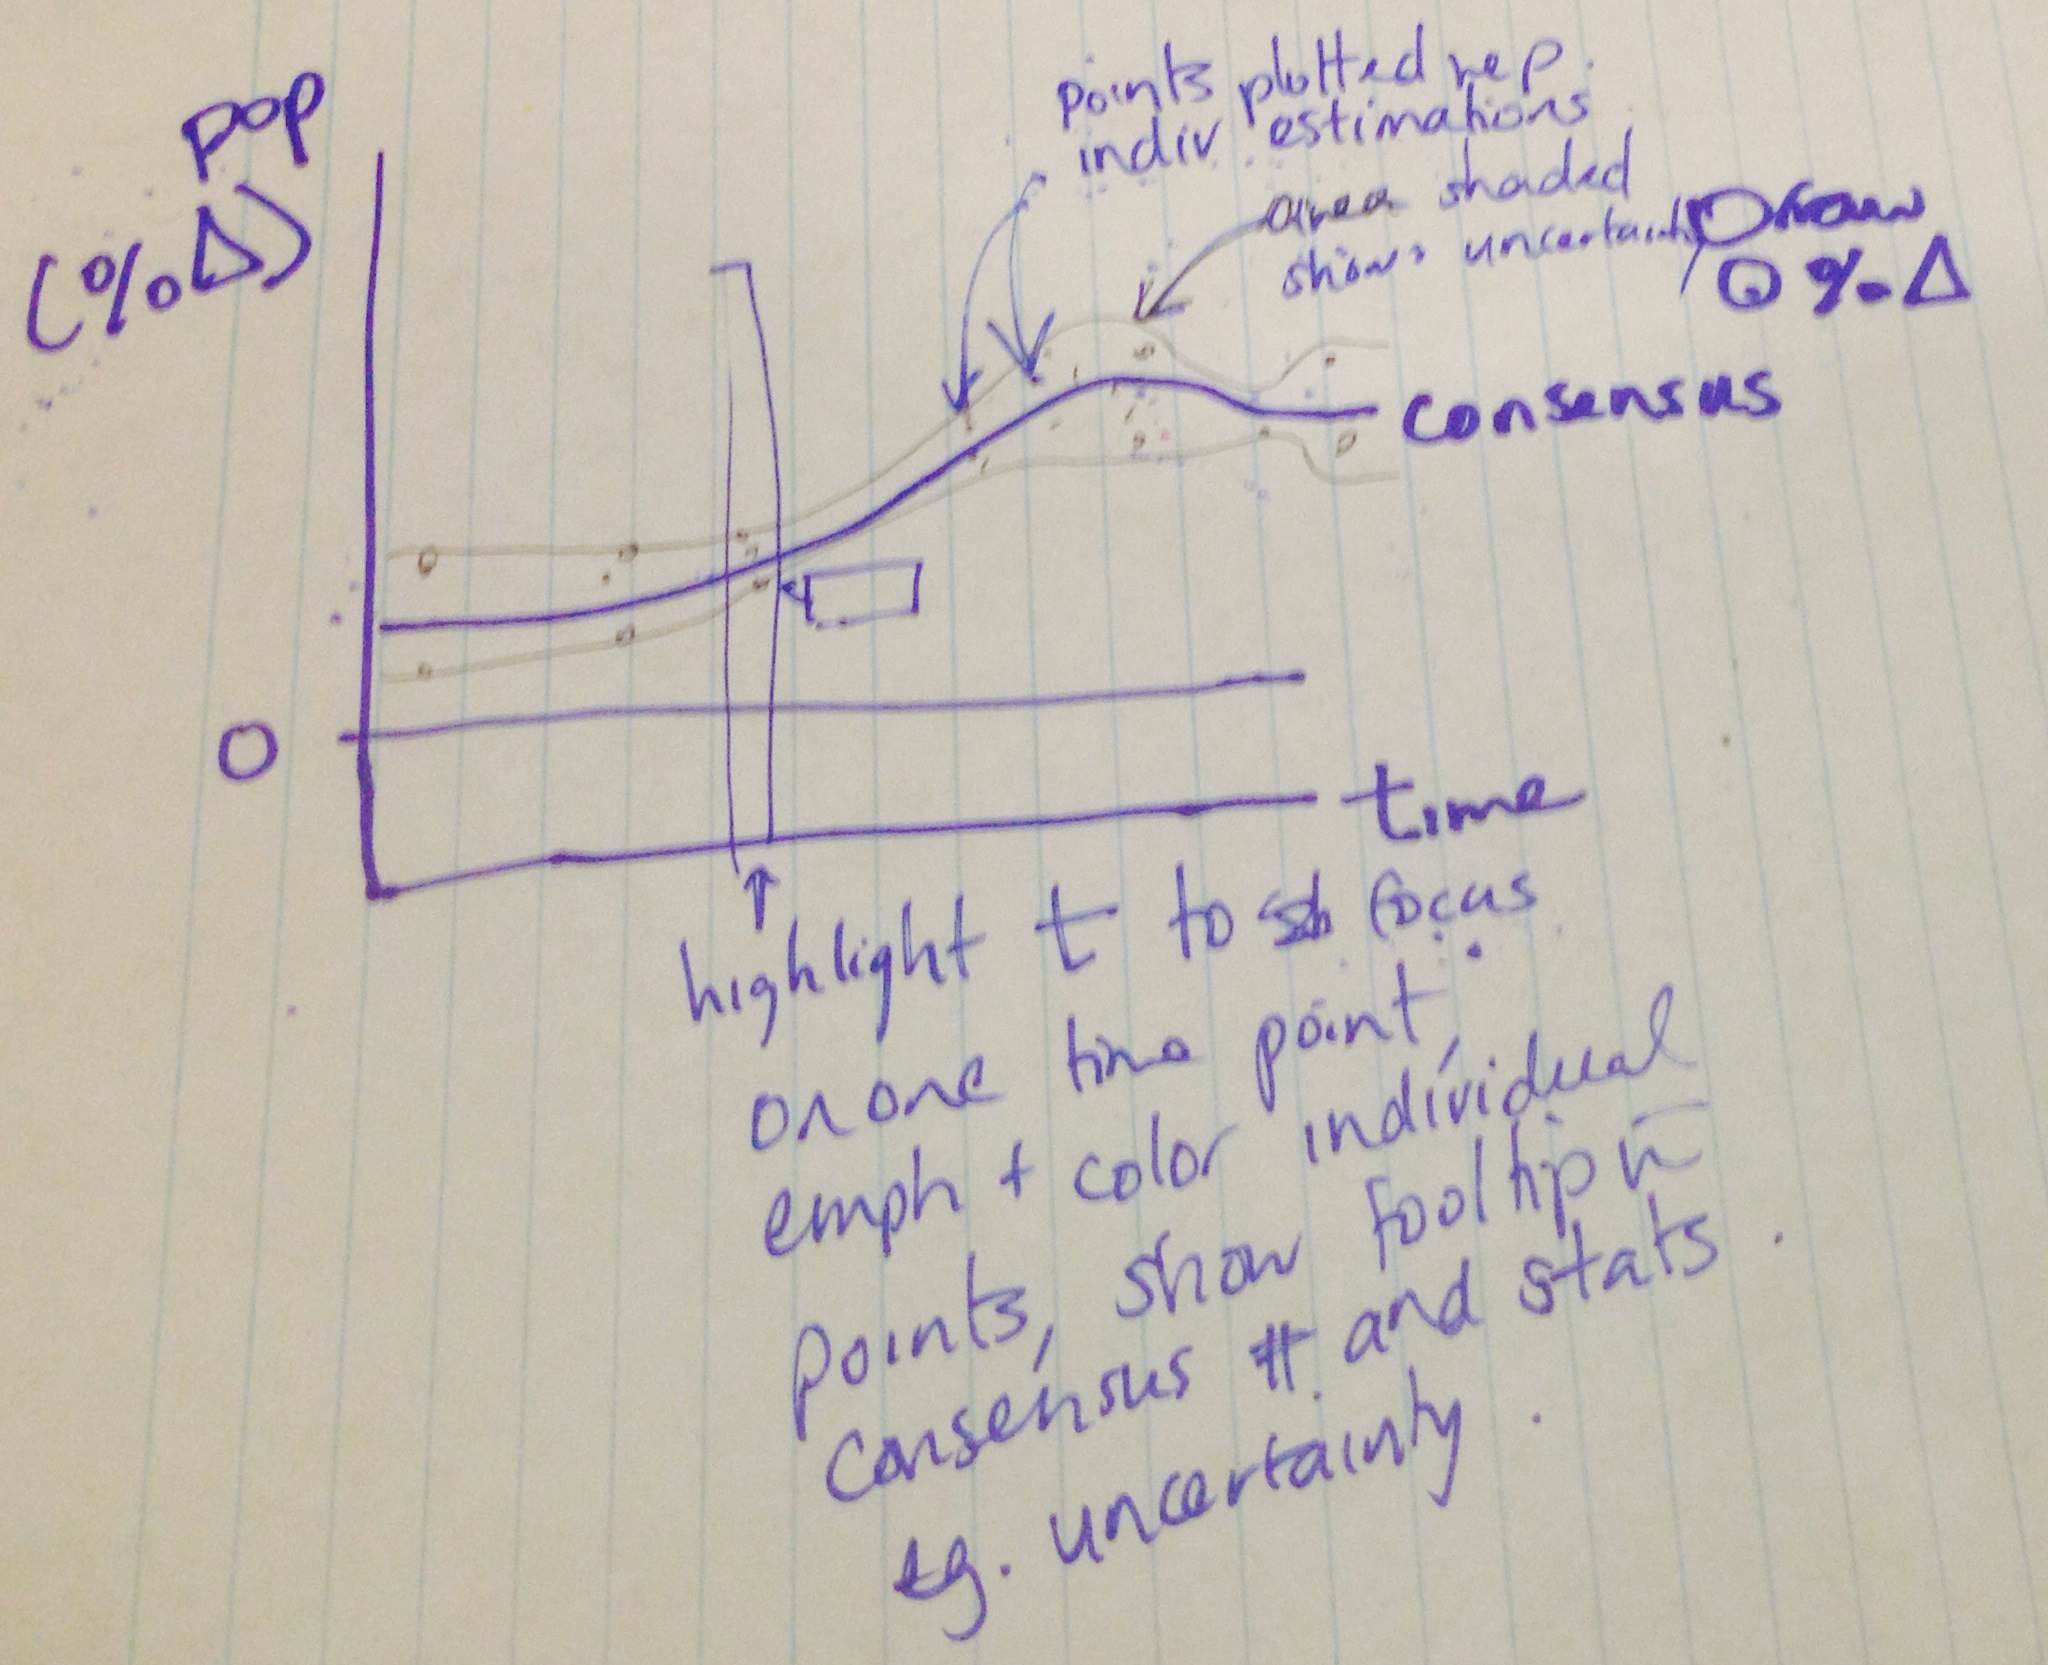 pop
(% Δ)
points plotted rep.
indiv estimations
area shaded
shows uncertainty
raw
% Δ
consensus
0
time
highlight t to focus
on one time point,
emph + color individual
points, show tooltip w
consensus # and stats.
eg. uncertainty.